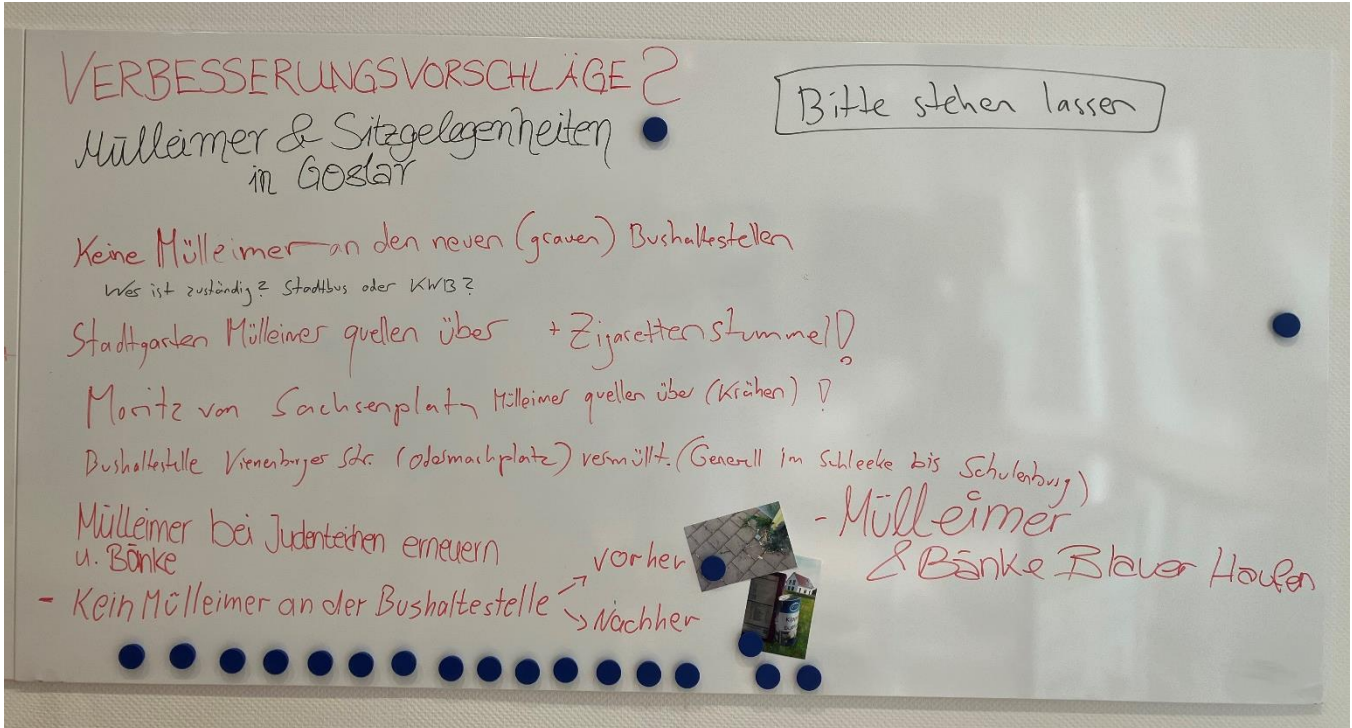 VERBESSERUNGSVORSCHLÄGE?
Bitte stehen lassen
Mülleimer & Sitzgelegenheiten
in Goslar
Keine Mülleimer an den neuen (grauen) Bushaltestellen
Wer ist zuständig? Stadtbus oder KWB?
Stadtgarten Mülleimer quellen über + Zigarettenstummel!
Moritz von Sachsenplatz Mülleimer quellen über (Krähen)!
Bushaltestelle Vienenburger Str. (Odermarkplatz) vermüllt. (Generell im Schleeke bis Schulenburg)
Mülleimer bei Judenteichen erneuern
u. Bänke
- Kein Mülleimer an der Bushaltestelle
vorher
Nachher
- Mülleimer
& Bänke Blauer Haufen